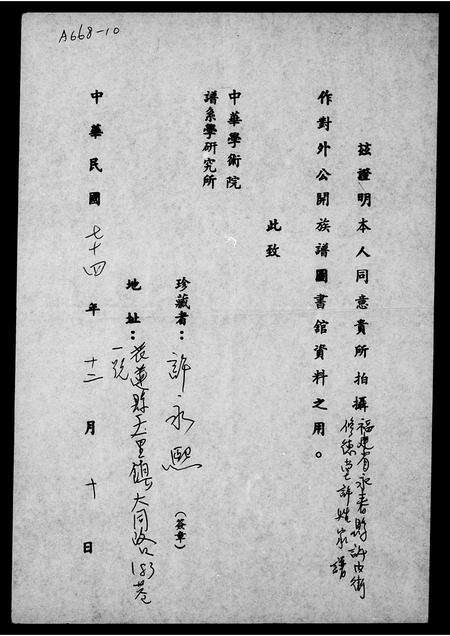 A668-10
茲證明本人同意貴所拍攝福建省永春縣許內街
修德堂許姓家譜
作對外公開族譜圖書館資料之用。
此致
中華學術院
譜系學研究所
珍藏者：許永熙（簽章）
地址：花蓮縣玉里鎮大同路183巷
一號
中華民國七十四年十二月十日